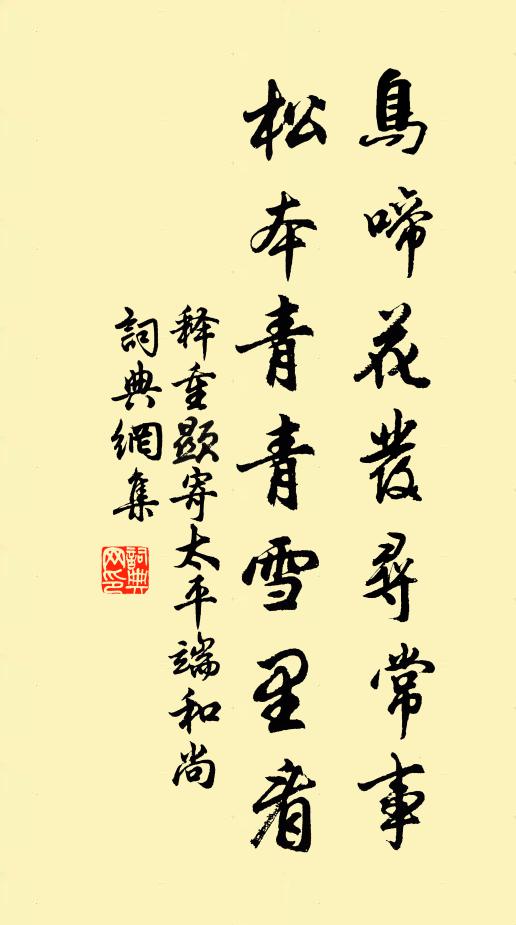 鳥啼花發尋常事
松本青青雪里看
释重顯寄太平端和尚
詞典網集
詞典網印